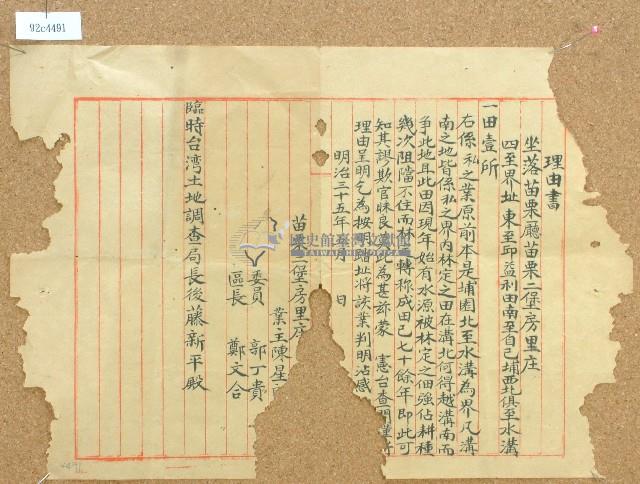 92c4491
理由書
坐落苗栗廳苗栗二堡房里庄
四至界址 東至邱益利田南至自己埔西北俱至水溝
一田壹所
右係私之業原前本是埔園北至水溝為界凡溝
南之地皆係私之界內林定之田在溝北何得越溝南而
爭此地耳此田因現年始有水源被林定之佃強佔耕種
幾次阻擋不住而林 轉称成田已七十餘年即此可
知其謬欺官昧良 此為甚茲蒙 憲台查明
理由呈明乞為按明 址將該業判明沾感
明治三十五年 月 日
苗栗二堡房里庄
業主陳星
委員 郭丁貴
區長 鄭文合
臨時台湾土地調查局長後藤新平殿
國史館臺灣文獻館
TAIWAN HISTORICA
4491